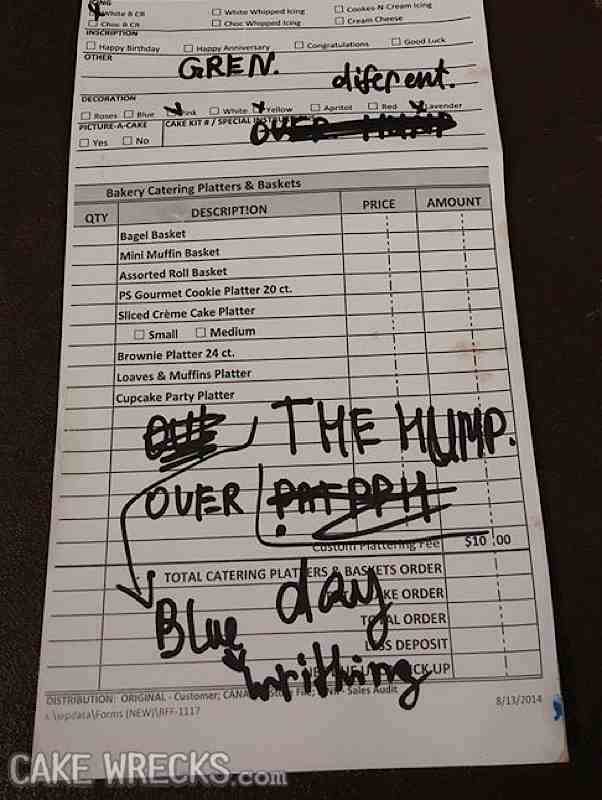 White & CB
☐ White Whipped Icing
☐ Cookies N Cream Icing
☐ Choc & CB
☐ Choc Whipped Icing
☐ Cream Cheese
INSCRIPTION
☐ Happy Birthday ☐ Happy Anniversary ☐ Congratulations ☐ Good Luck
OTHER
GREN. diferent.
DECORATION
☐ Roses ☐ Blue Pink ☐ White Yellow ☐ Apritot ☐ Red Lavender
PICTURE-A-CAKE CAKE KIT # / SPECIAL
☐ Yes ☐ No
OVER HUMP
Bakery Catering Platters & Baskets
QTY DESCRIPTION PRICE AMOUNT
Bagel Basket
Mini Muffin Basket
Assorted Roll Basket
PS Gourmet Cookie Platter 20 ct.
Sliced Crème Cake Platter
☐ Small ☐ Medium
Brownie Platter 24 ct.
Loaves & Muffins Platter
Cupcake Party Platter
THE HUMP.
OVER
Custom Plattering Fee $10 .00
TOTAL CATERING PLATTERS & BASKETS ORDER
day
ORDER
TOTAL ORDER
Blue
LESS DEPOSIT
writhing
DISTRIBUTION: ORIGINAL - Customer; Sales Audit
8/13/2014
CAKE WRECKS.com